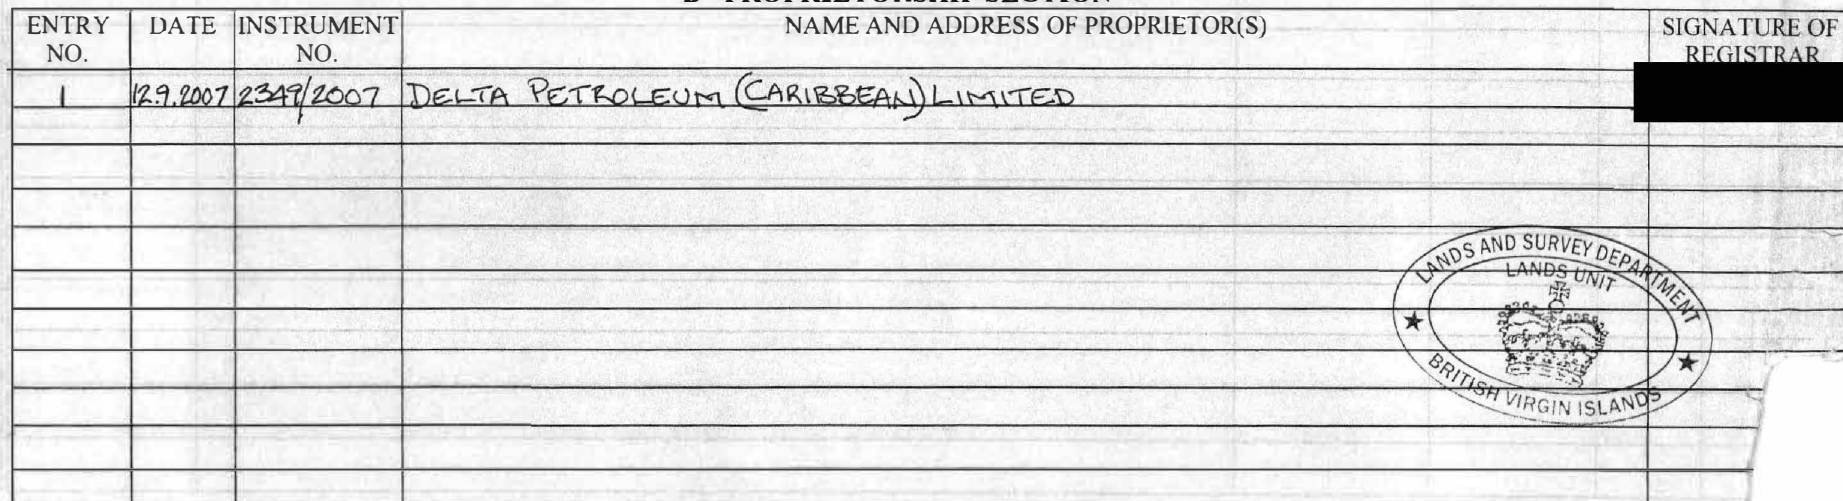 B - PROPRIETORSHIP SECTION
ENTRY NO. DATE INSTRUMENT NO. NAME AND ADDRESS OF PROPRIETOR(S) SIGNATURE OF REGISTRAR
1 12.9.2007 2349/2007 DELTA PETROLEUM (CARIBBEAN) LIMITED
LANDS AND SURVEY DEPARTMENT
LANDS UNIT
BRITISH VIRGIN ISLANDS